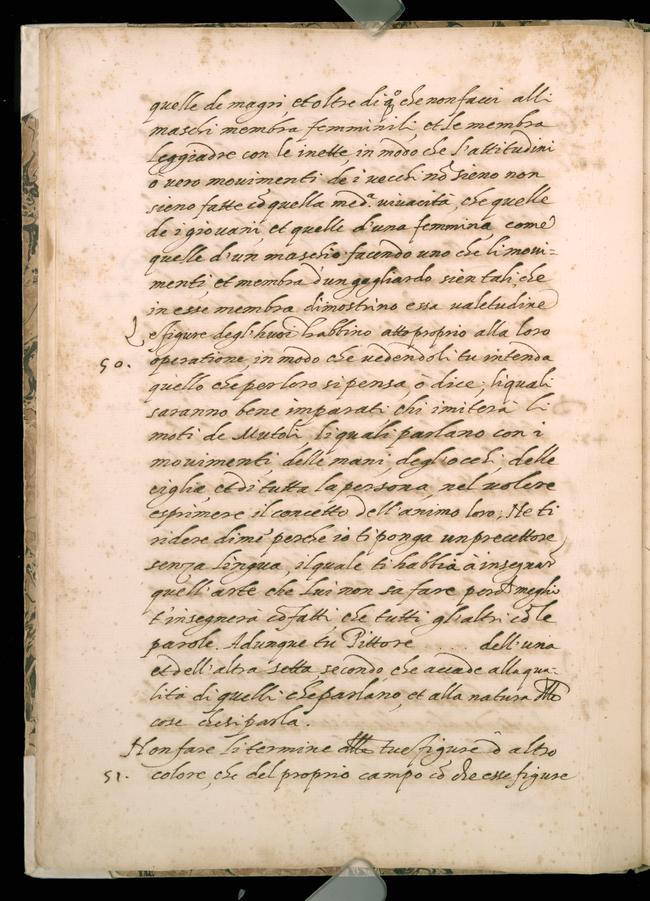 quelle de magri et oltre di qº che non facci alli
maschi membra femminili, et le membra
leggiadre con le inette, in modo che l'attitudini
o vero movimenti de i vecchi nō sieno non
sieno fatte cō quella medª. vivacità, che quelle
de i giovani, et quelle d'una femmina, come
quelle d'un maschio: facendo uno che li movi=
menti, et membra d'un gagliardo sien tali, che
in esse membra dimostrino essa valetudine
Le figure degl'huoī habbino atto proprio alla loro
50. operatione, in modo che vedendoli tu intenda
quello che per loro si pensa, ò dice; li quali
saranno bene imparati chi imiterà li
moti de Mutoli, li quali parlano con i
movimenti, delle mani, degl'occhi, delle
ciglia, et di tutta la persona, nel volere
esprimere il concetto dell'animo loro; Ne ti
ridere di mē perche io ti ponga un precettore
senza lingua, il quale ti habbia à insegnar
quell'arte che lui non sà fare, perō meglio
t'insegnerà cō fatti che tutti gl'altri cō le
parole. Adunque tu Pittore . . . dell'una
et dell'altra setta, secondo che accade alla qua-
lità di quelli che parlano, et alla natura delle
cose che si parla.
Non fare li termine delle tue figure d' altro
51. colore, che del proprio campo cō che esse figure